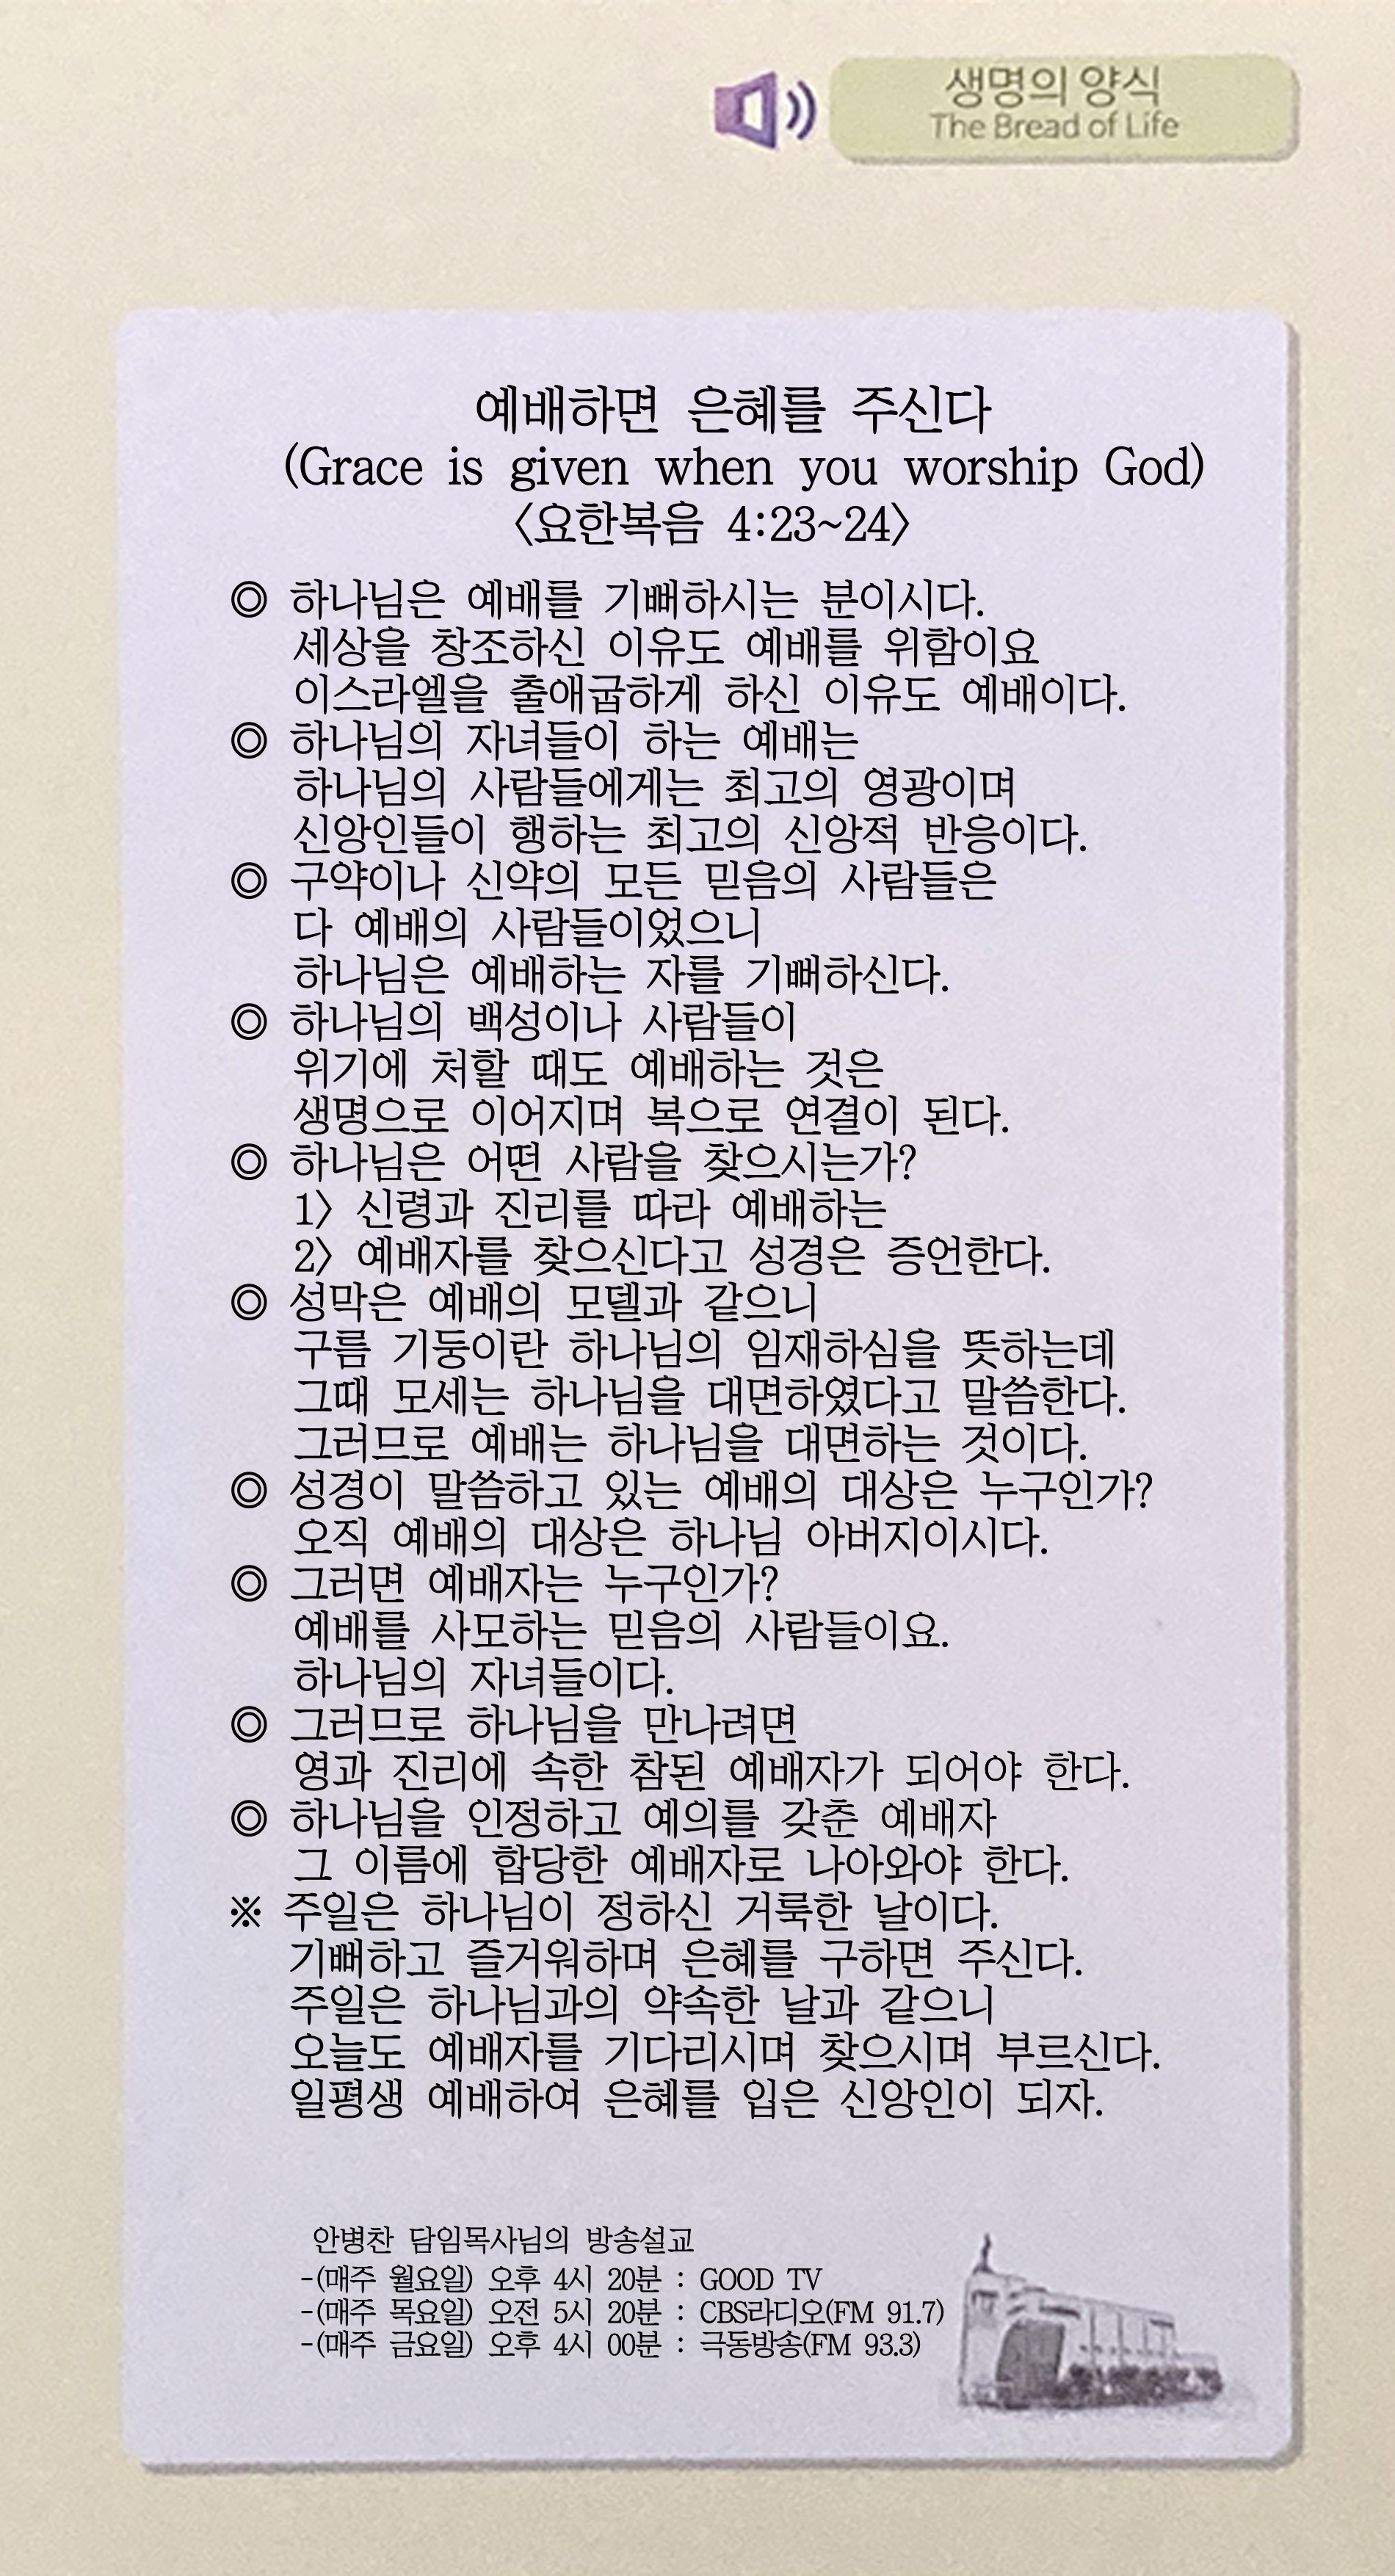 생명의 양식
The Bread of Life
예배하면 은혜를 주신다
(Grace is given when you worship God)
〈요한복음 4:23~24〉
◎ 하나님은 예배를 기뻐하시는 분이시다.
세상을 창조하신 이유도 예배를 위함이요
이스라엘을 출애굽하게 하신 이유도 예배이다.
◎ 하나님의 자녀들이 하는 예배는
하나님의 사람들에게는 최고의 영광이며
신앙인들이 행하는 최고의 신앙적 반응이다.
◎ 구약이나 신약의 모든 믿음의 사람들은
다 예배의 사람들이었으니
하나님은 예배하는 자를 기뻐하신다.
◎ 하나님의 백성이나 사람들이
위기에 처할 때도 예배하는 것은
생명으로 이어지며 복으로 연결이 된다.
◎ 하나님은 어떤 사람을 찾으시는가?
1〉 신령과 진리를 따라 예배하는
2〉 예배자를 찾으신다고 성경은 증언한다.
◎ 성막은 예배의 모델과 같으니
구름 기둥이란 하나님의 임재하심을 뜻하는데
그때 모세는 하나님을 대면하였다고 말씀한다.
그러므로 예배는 하나님을 대면하는 것이다.
◎ 성경이 말씀하고 있는 예배의 대상은 누구인가?
오직 예배의 대상은 하나님 아버지이시다.
◎ 그러면 예배자는 누구인가?
예배를 사모하는 믿음의 사람들이요.
하나님의 자녀들이다.
◎ 그러므로 하나님을 만나려면
영과 진리에 속한 참된 예배자가 되어야 한다.
◎ 하나님을 인정하고 예의를 갖춘 예배자
그 이름에 합당한 예배자로 나아와야 한다.
※ 주일은 하나님이 정하신 거룩한 날이다.
기뻐하고 즐거워하며 은혜를 구하면 주신다.
주일은 하나님과의 약속한 날과 같으니
오늘도 예배자를 기다리시며 찾으시며 부르신다.
일평생 예배하여 은혜를 입은 신앙인이 되자.
안병찬 담임목사님의 방송설교
-(매주 월요일) 오후 4시 20분 : GOOD TV
-(매주 목요일) 오전 5시 20분 : CBS라디오(FM 91.7)
-(매주 금요일) 오후 4시 00분 : 극동방송(FM 93.3)